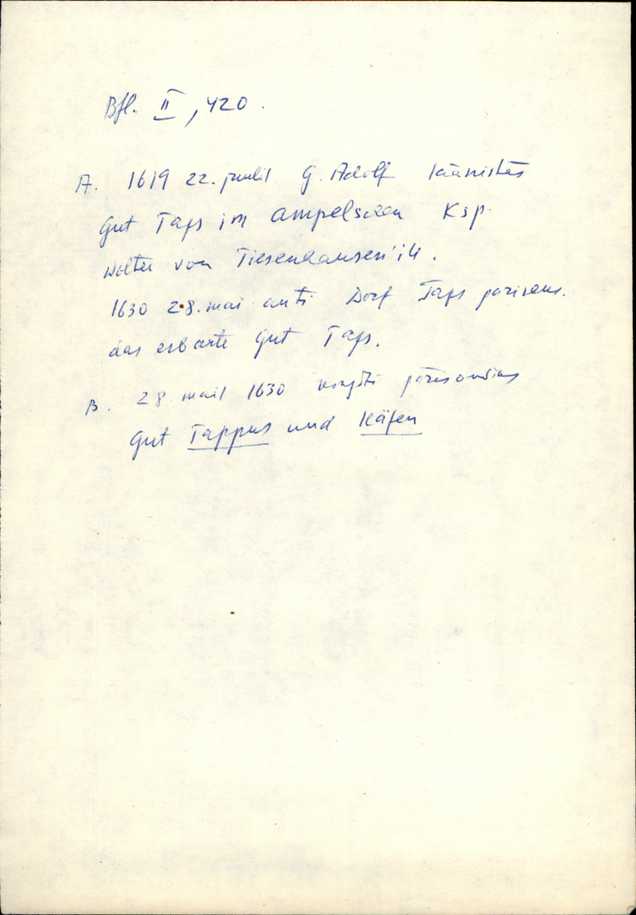 Bfl. II, 420.
A. 1619 22. juulil G. Adolf läänistas
Gut Taps im Ampelschen Ksp.
Wolter von Tiesenhausen'ile.
1630 28. mai anti Dorf Taps
das erbarte Gut Taps.
B. 28. mail 1630
Gut Tappus und Käfen